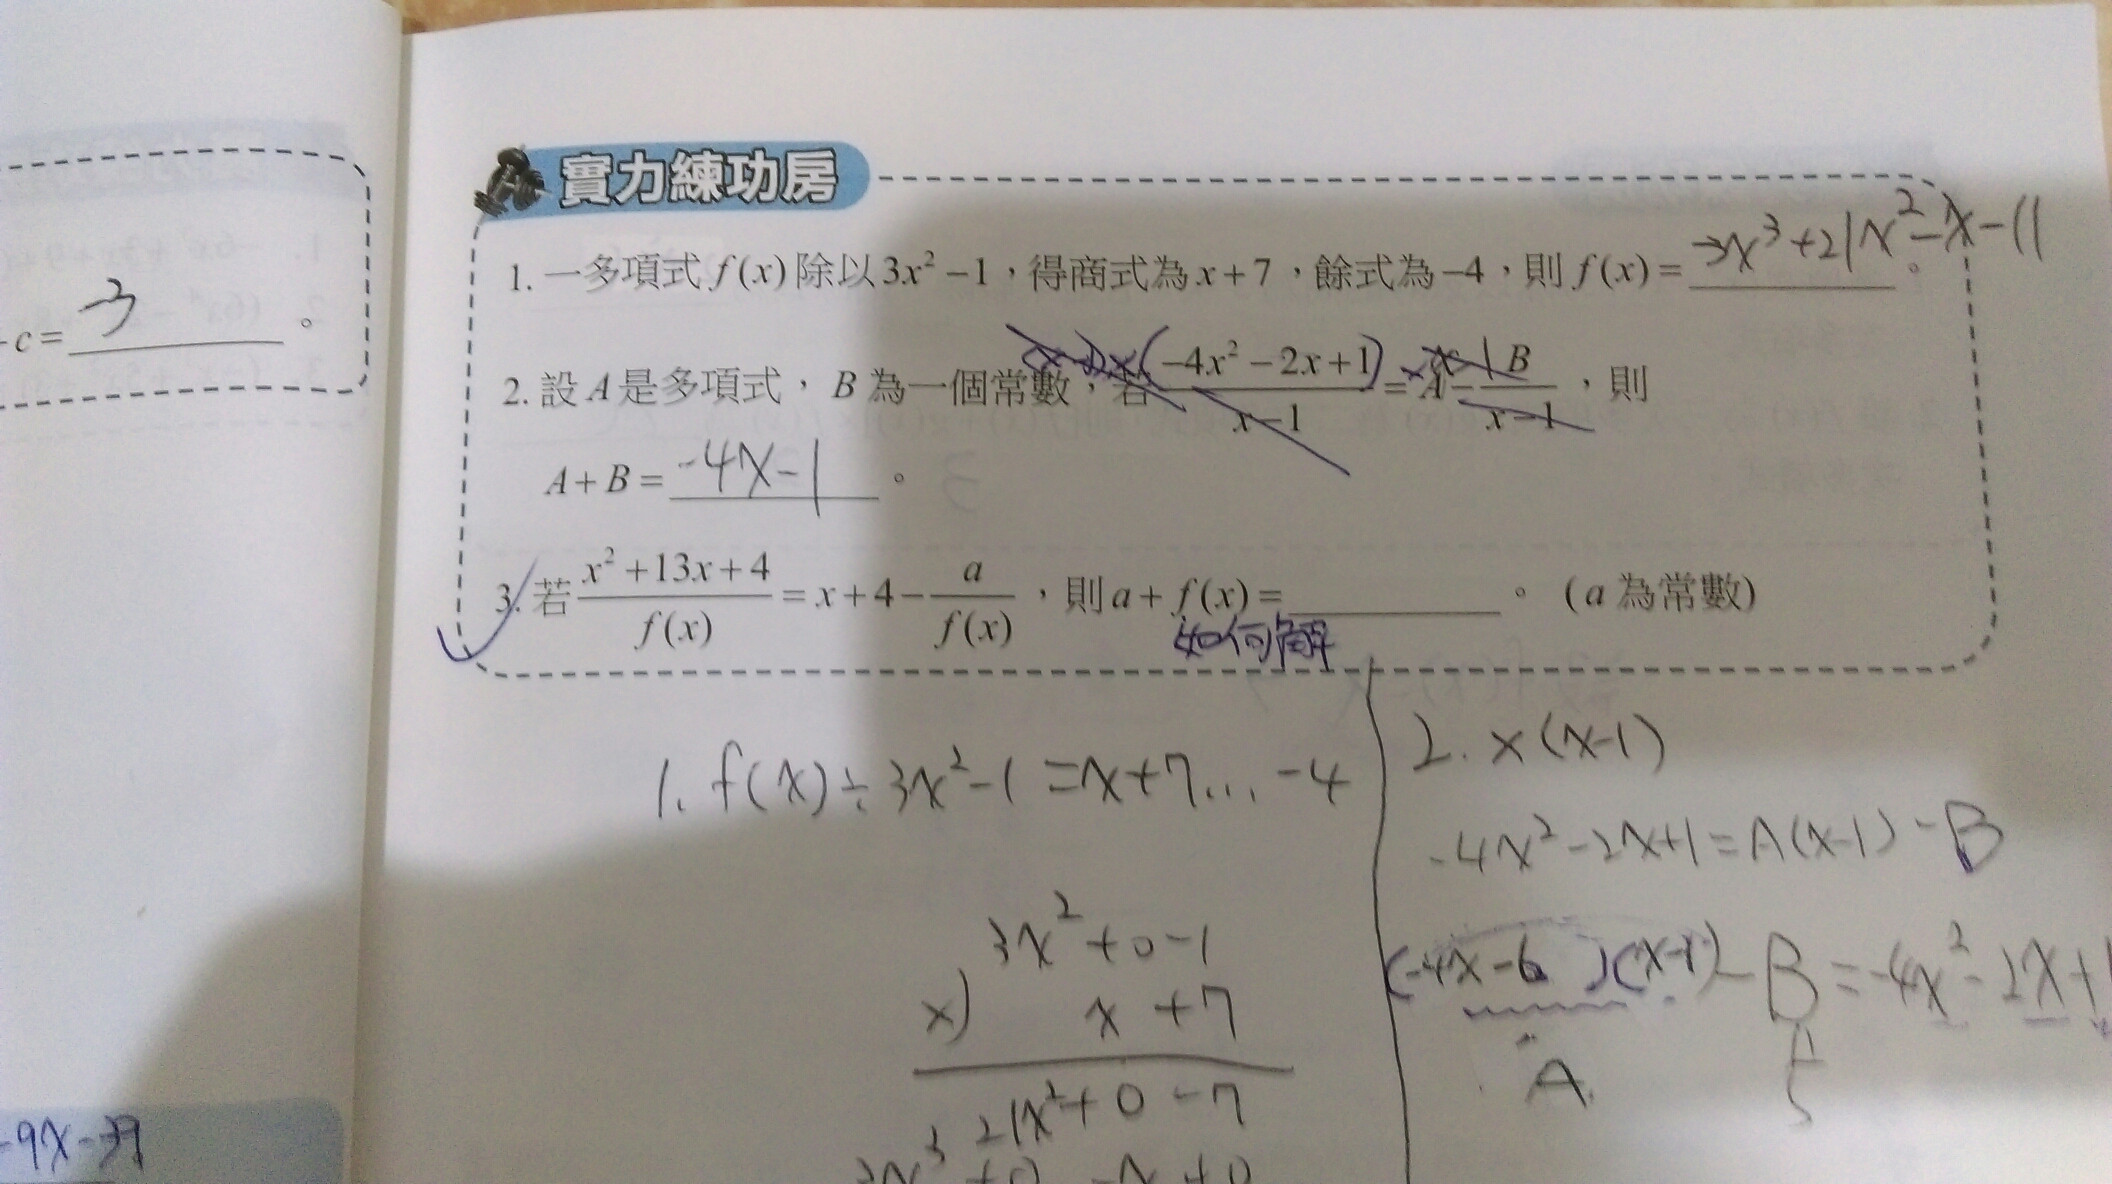 實力練功房
1. 一多項式 f(x) 除以 3x² −1，得商式為 x+7，餘式為 −4，則 f(x) = 3x³+21x²-x-11。
2. 設 A 是多項式， B 為一個常數，若 (−4x² −2x+1)/(x−1) = A − B/(x−1)，則
A+B = -4x-1。
3. 若 (x² +13x+4)/f(x) = x+4− a/f(x)，則 a+ f(x) = ＿＿＿＿。（a 為常數）
如何解
-c = 3。
1. f(x)÷3x²-1=x+7... -4
3x²+0-1
x) x+7
21x²+0-7
3x³+0 -x+0
2. x(x-1)
-4x²-2x+1=A(x-1)-B
(-4x-6)(x-1)-B=-4x²-2x+1
A
5
-9x-39